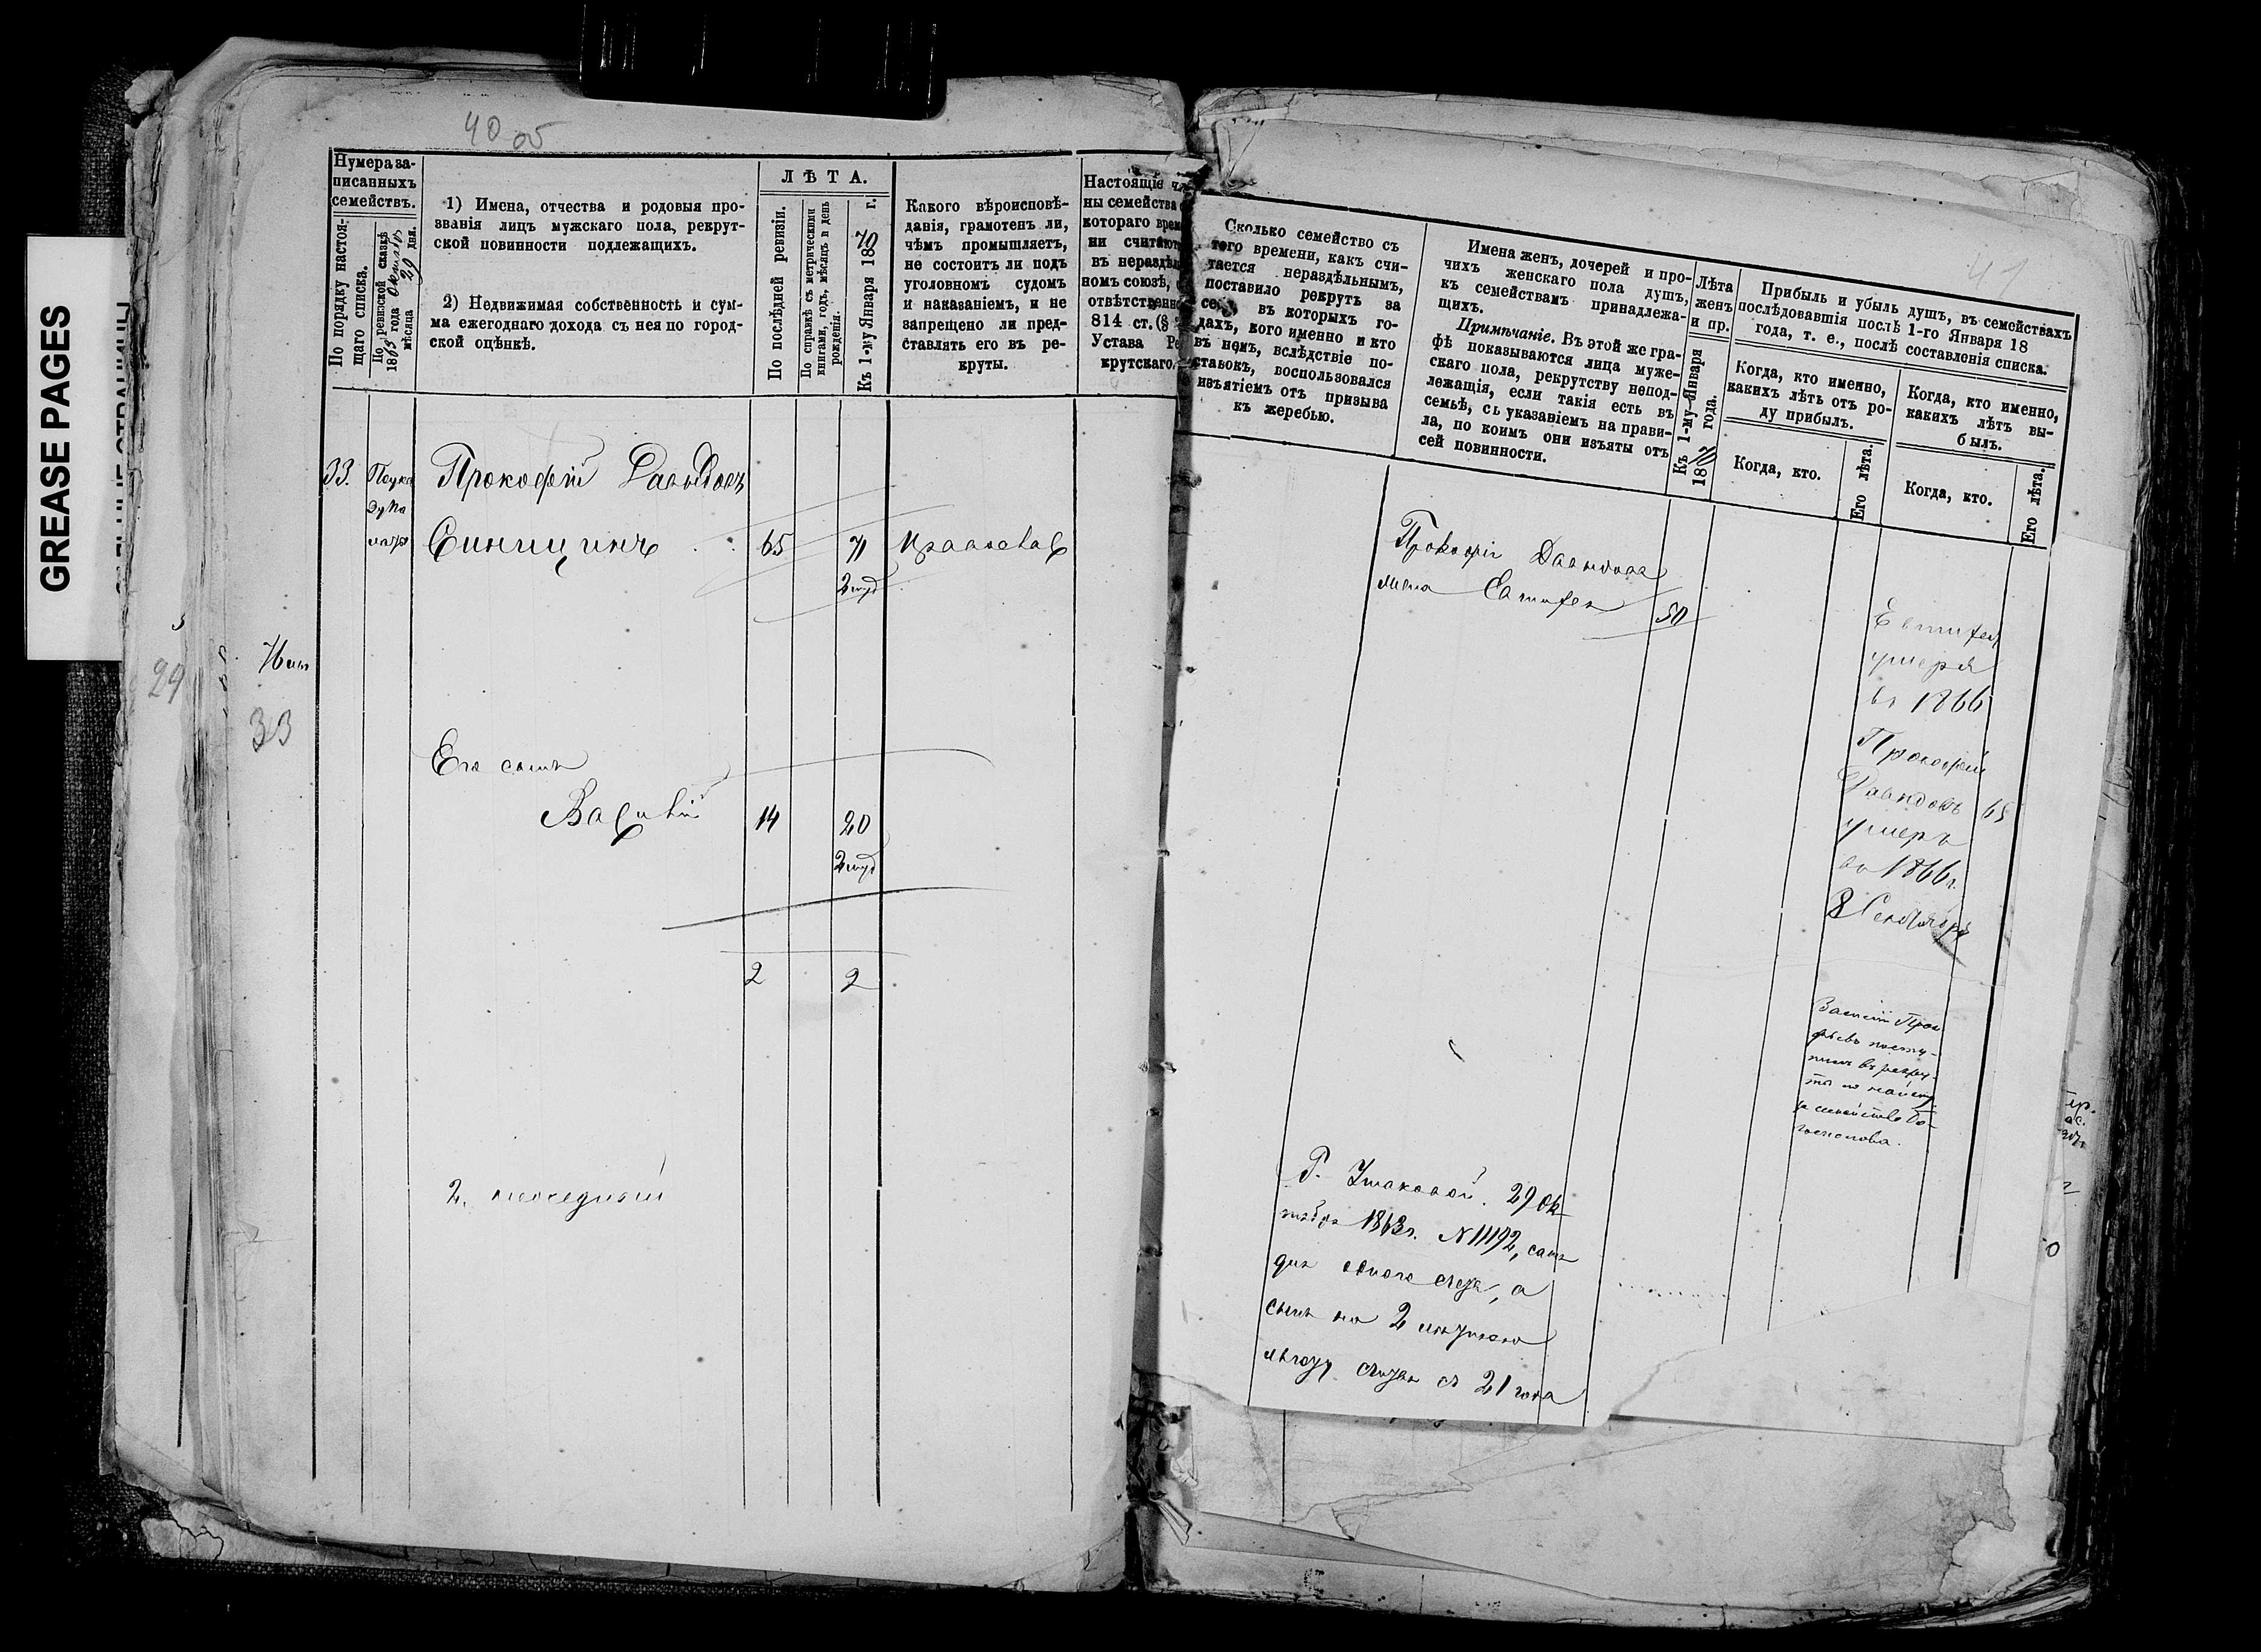 GREASE PAGES
40 об
Нумера за-
писанныхъ
семействъ.
По порядку настоя-
щаго списка.
По ревизской сказкѣ
1863 года Октября
мѣсяца 29 дня.
1) Имена, отчества и родовыя про-
званія лицъ мужскаго пола, рекрут-
ской повинности подлежащихъ.
2) Недвижимая собственность и сум-
ма ежегоднаго дохода съ нея по город-
ской оцѣнкѣ.
ЛѢТА.
По послѣдней ревизіи.
По справкѣ съ метрическими
книгами, годъ, мѣсяцъ и день
рожденія.
Къ 1-му Января 1870 г.
Какого вѣроисповѣ-
данія, грамотенъ ли,
чѣмъ промышляетъ,
не состоитъ ли подъ
уголовномъ судомъ
и наказаніемъ, и не
запрещено ли пред-
ставлять его въ ре-
круты.
Настоящіе
ны семейства
котораго
ни считают
въ нераздѣл
номъ союзѣ,
отвѣтственно
814 ст.
Устава Ре
крутскаго.
33.
Прокофій Давыдовъ
Синицинъ 65 71
2 муж
29
33
Его сынъ
Василій 14 20
2 муж
2 2
2.
41
Сколько семейство съ
того времени, какъ счи-
тается нераздѣльнымъ,
поставило рекрутъ за
въ которыхъ го-
дахъ, кого именно и кто
въ немъ, вслѣдствіе по-
ставокъ, воспользовался
изъятіемъ отъ призыва
къ жеребью.
Имена женъ, дочерей и про-
чихъ женскаго пола душъ,
къ семействамъ принадлежа-
щихъ.
Примѣчаніе. Въ этой же гра-
фѣ показываются лица муже-
скаго пола, рекрутству непод-
лежащія, если такія есть въ
семьѣ, съ указаніемъ на прави-
ла, по коимъ они изъяты отъ
сей повинности.
Лѣта
женъ
и пр.
Къ 1-му Января
1870 года.
Прибыль и убыль душъ, въ семействахъ
послѣдовавшія послѣ 1-го Января 18
года, т. е., послѣ составленія списка.
Когда, кто именно,
какихъ лѣтъ отъ ро-
ду прибылъ.
Когда, кто.
Его лѣта.
Когда, кто именно,
какихъ лѣтъ вы-
былъ.
Когда, кто.
Его лѣта.
Прокофія Давыдова
жена 50
умерла
въ 1866
Прокофій
Давыдовъ 65
умеръ
въ 1866 г.
8 Сентября
Василій Проко
фьевъ посту-
пилъ въ рекру-
ты по найму
за семейство Бо-
гомолова.
Г. Ушаковой. 29 Ок-
тября 1863 г. N 11192, самъ
для одного счета, а
сынъ на 2
льготу съ 21 года